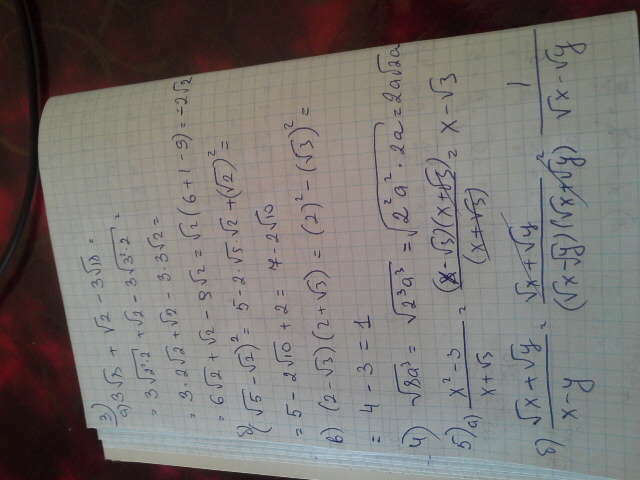 3)
а) 3√8 + √2 - 3√18 =
= 3√2²·2 + √2 - 3√3²·2 =
= 3·2√2 + √2 - 3·3√2 =
= 6√2 + √2 - 9√2 = √2(6+1-9) = -2√2
б) (√5 - √2)² = 5 - 2·√5·√2 + (√2)² =
= 5 - 2√10 + 2 = 7 - 2√10
в) (2-√3)(2+√3) = (2)² - (√3)² =
= 4 - 3 = 1
4) √8a³ = √2³a³ = √2²a²·2a = 2a√2a
5) а) x² - 3 / x + √3 = (x - √3)(x + √3) / (x + √3) = x - √3
б) √x + √y / x - y = √x + √y / (√x - √y)(√x + √y) = 1 / √x - √y